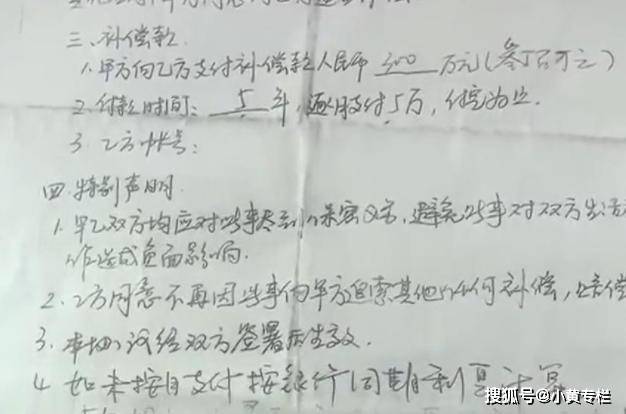 三、补偿款
1. 甲方向乙方支付补偿款人民币 300 万元(叁佰万元)
2. 付款时间: 5 年, 逐月支付5万, 付完为止.
3. 乙方帐号:
四. 特别声明.
1. 甲乙双方均应对此事尽到保密义务, 避免此事对双方生活
作造成负面影响.
2. 乙方同意不再因此事向甲方追索其他任何补偿, 赔偿
3. 本协议经双方签署后生效.
4. 如未按月支付按银行同期利息计算
搜狐号@小黄专栏